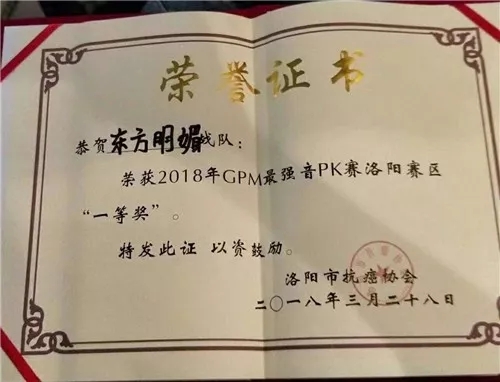 荣誉证书
恭贺东方明媚战队：
荣获2018年GPM最强音PK赛洛阳赛区
“一等奖”。
特发此证 以资鼓励。
洛阳市抗癌协会
二〇一八年三月二十八日